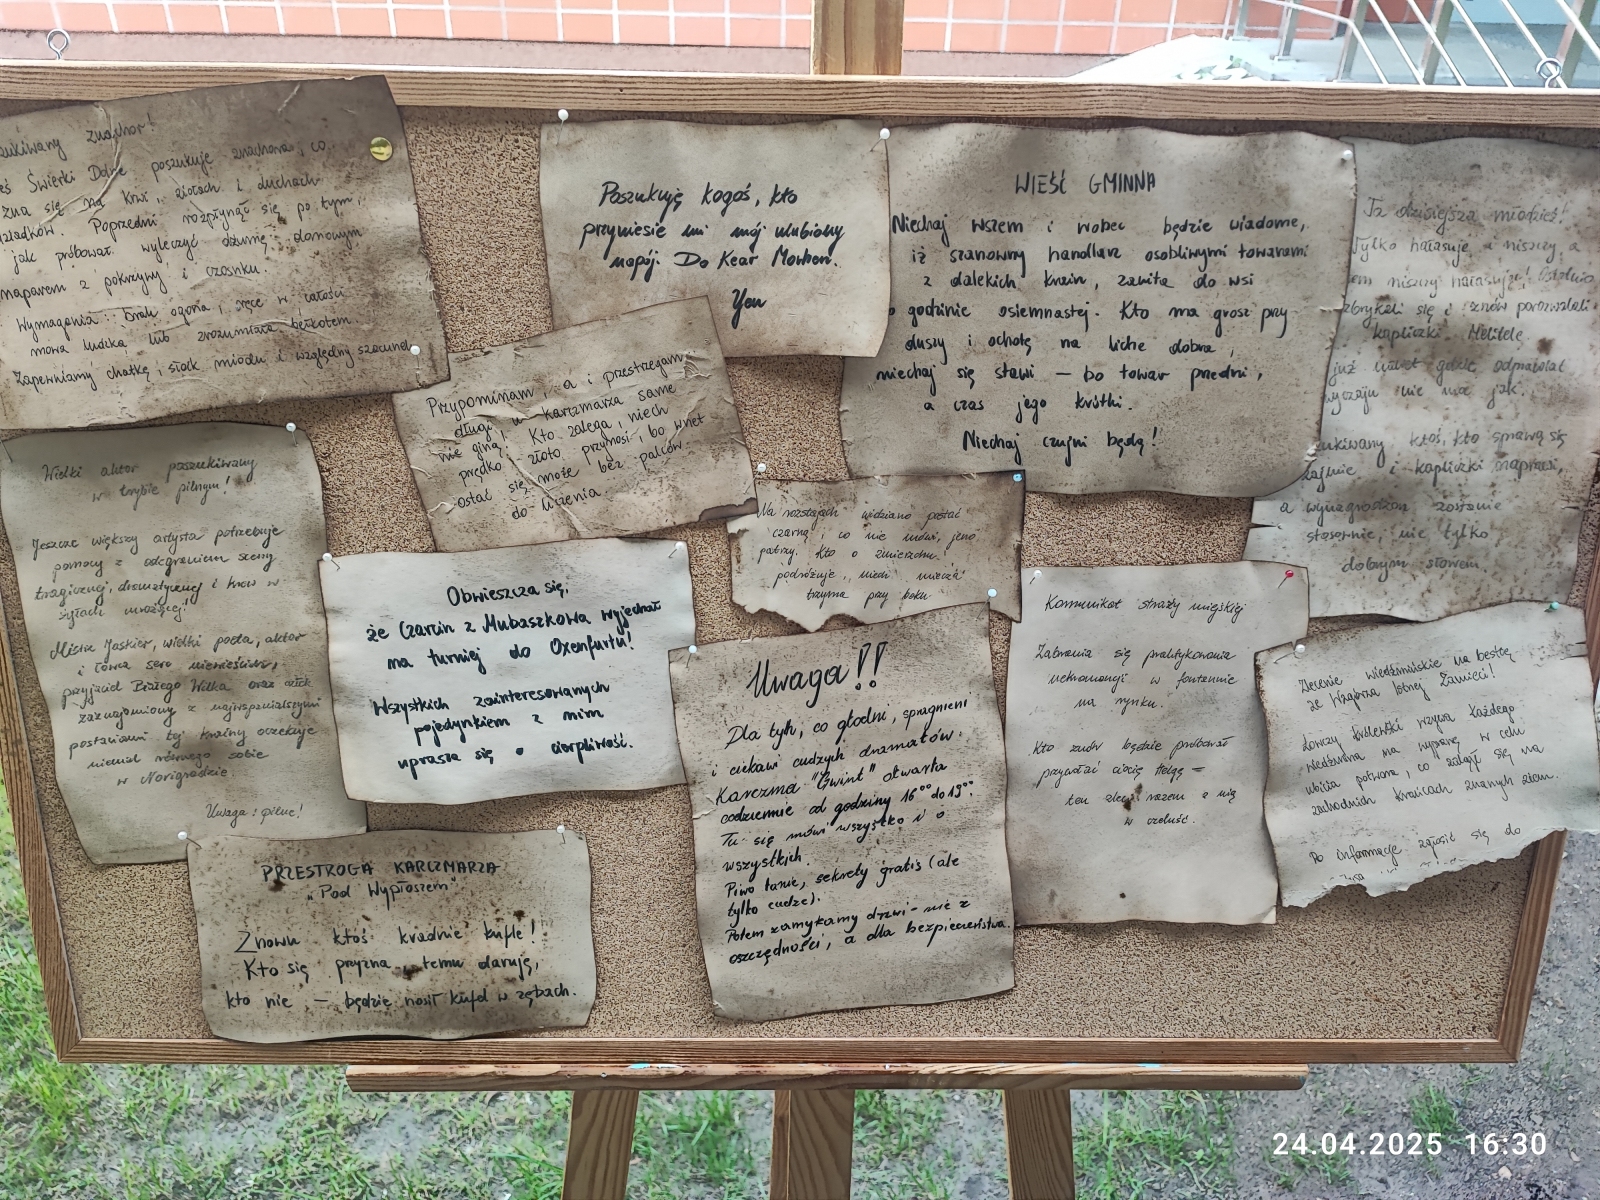 znachor!
Świerki Dolne poszukuje znachora, co
zna się na krwi, ziołach i duchach
Poprzedni rozpłynął się po tym,
jak próbował wyleczyć dżumę domowym
naparem z pokrzywy i czosnku.
Wymagania: brak ogona, ręce w całości
mowa ludzka lub zrozumiała bełkotem.
Zapewniamy chatkę, słoik miodu i względny szacunek
Poszukuję kogoś, kto
przyniesie mi mój ulubiony
napój: Do Kear Morhen.
Yen
WIEŚĆ GMINNA
Niechaj wszem i wobec będzie wiadome,
iż szanowny handlarz osobliwymi towarami
z dalekich krain, zawita do wsi
o godzinie osiemnastej. Kto ma grosz przy
duszy i ochotę na liche dobra,
niechaj się stawi – bo towar przedni,
a czas jego krótki.
Niechaj czujni będą!
Ta dzisiejsza młodzież!
Tylko hałasuje a niszczy a
niszczy hałasując! Ostatnio
zbrykali się i znów porozwalali
kapliczki Melitele
już nawet gdzie odprawiać
nie ma jak.
ktoś, kto sprawą się
zajmie i kapliczki naprawi,
a wynagrodzon zostanie
stosownie, nie tylko
dobrym słowem.
Przypominam, a i przestrzegam,
długi u karczmarza same
nie giną. Kto zalega, niech
prędko złoto przynosi, bo wnet
ostać się może bez palców
do liczenia.
Wielki aktor poszukiwany
w trybie pilnym!
Jeszcze większy artysta potrzebuje
pomocy z odegraniem sceny
tragicznej, dramatycznej i krew w
żyłach mrożącej!
Mistrz Jaskier, wielki poeta, aktor
i łowca serc niewieścich,
przyjaciel Białego Wilka oraz człek
zaznajomiony z najwspanialszymi
postaciami tej krainy oczekuje
niemal równego sobie
w Novigradzie.
Uwaga: pilne!
Na rozstajach widziano postać
czarną, co nie mówi, jeno
patrzy. Kto o zmierzchu
podróżuje, niech miecz
trzyma przy boku.
Obwieszcza się,
że Czarcin z Mubaszkowa wyjechał
na turniej do Oxenfurtu!
Wszystkich zainteresowanych
pojedynkiem z nim
uprasza się o cierpliwość.
Uwaga!!
Dla tych, co głodni, spragnieni
i ciekawi cudzych dramatów:
Karczma "Gwint" otwarta
codziennie od godziny 16°° do 19°°.
Tu się mówi wszystko i o
wszystkich.
Piwo tanie, sekrety gratis (ale
tylko cudze).
Potem zamykamy drzwi - nie z
oszczędności, a dla bezpieczeństwa.
Komunikat straży miejskiej
Zabrania się praktykowania
nekromancji w fontannie
na rynku.
Kto znów będzie próbował
przywołać ciocię Helgę –
ten zleci razem z nią
w czeluść.
Zlecenie wiedźmińskie na bestię
ze Wzgórza Lotnej Zamieci!
Łowczy królewski wzywa każdego
wiedźmina na wyprawę w celu
ubicia potwora, co zalągł się na
zachodnich krańcach znanych ziem.
Po informacje zgłosić się do
PRZESTROGA KARCZMARZA
"Pod Wypłoszem"
Znowu ktoś kradnie kufle!
Kto się przyzna, temu daruję,
kto nie – będzie nosił kufel w zębach.
24.04.2025 16:30